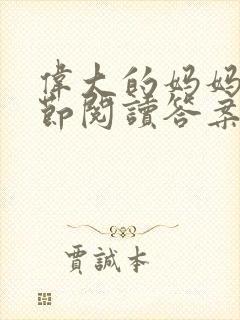 偉大的媽媽
節閱讀答案
賈誠本